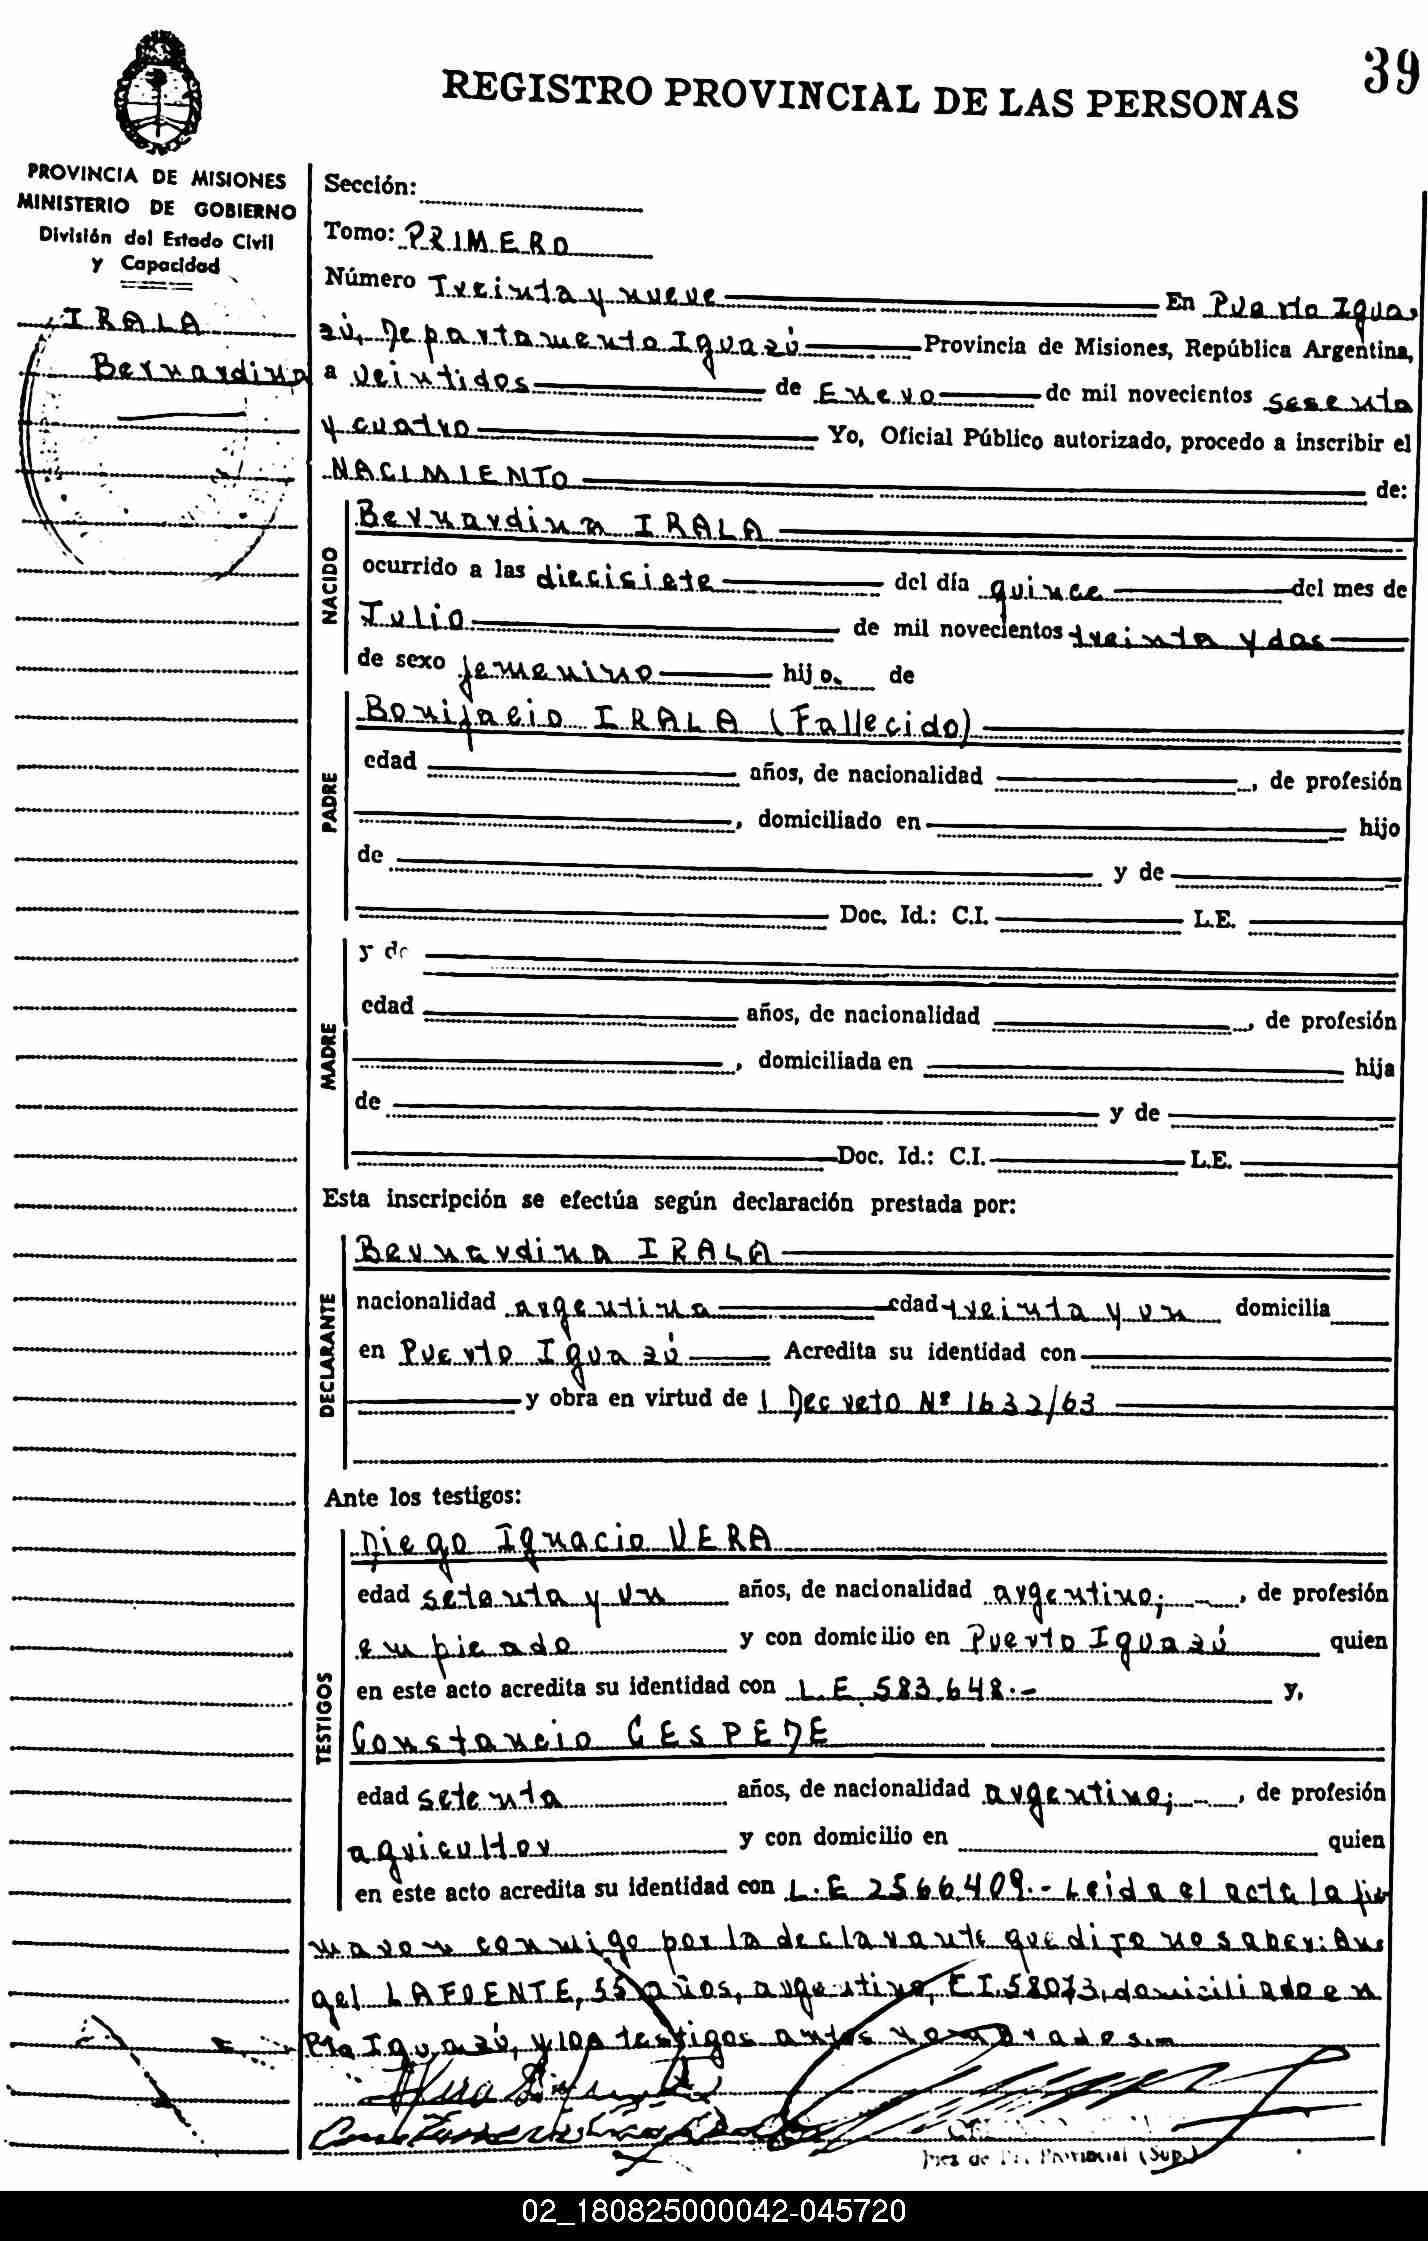 39
REGISTRO PROVINCIAL DE LAS PERSONAS
PROVINCIA DE MISIONES
MINISTERIO DE GOBIERNO
División del Estado Civil
y Capacidad
IRALA
Bernardina
Sección:
Tomo: PRIMERO
Número Treinta y nueve En Puerto Igua
zú, Departamento Iguazú Provincia de Misiones, República Argentina,
a veintidos de Enero de mil novecientos sesenta
y cuatro Yo, Oficial Público autorizado, procedo a inscribir el
NACIMIENTO de:
NACIDO
Bernardina IRALA
ocurrido a las diecisiete del día quince del mes de
Julio de mil novecientos treinta y dos
de sexo femenino hijo. de
PADRE
Bonifacio IRALA (Fallecido)
edad años, de nacionalidad , de profesión
, domiciliado en hijo
de y de
Doc. Id.: C.I. L.E.
MADRE
y de
edad años, de nacionalidad , de profesión
, domiciliada en hija
de y de
Doc. Id.: C.I. L.E.
Esta inscripción se efectúa según declaración prestada por:
DECLARANTE
Bernardina IRALA
nacionalidad argentina edad treinta y un domicilia
en Puerto Iguazú Acredita su identidad con
y obra en virtud de l Decreto Nº 1632/63
Ante los testigos:
TESTIGOS
Diego Ignacio VERA
edad setenta y un años, de nacionalidad argentino; , de profesión
empleado y con domicilio en Puerto Iguazú quien
en este acto acredita su identidad con L.E. 583.648.- y,
Constancio CESPEDE
edad setenta años, de nacionalidad argentino; , de profesión
agricultor y con domicilio en quien
en este acto acredita su identidad con L.E 2566.409.- Leida el acta la fir
maron conmigo por la declarante que dijo no saber: An
gel LAFUENTE, 55 años, argentino, C.I. 58073, domiciliado en
Pto Iguazú, y los testigos antes nombrados.
Juez de Provincial (Sup.)
02_180825000042-045720